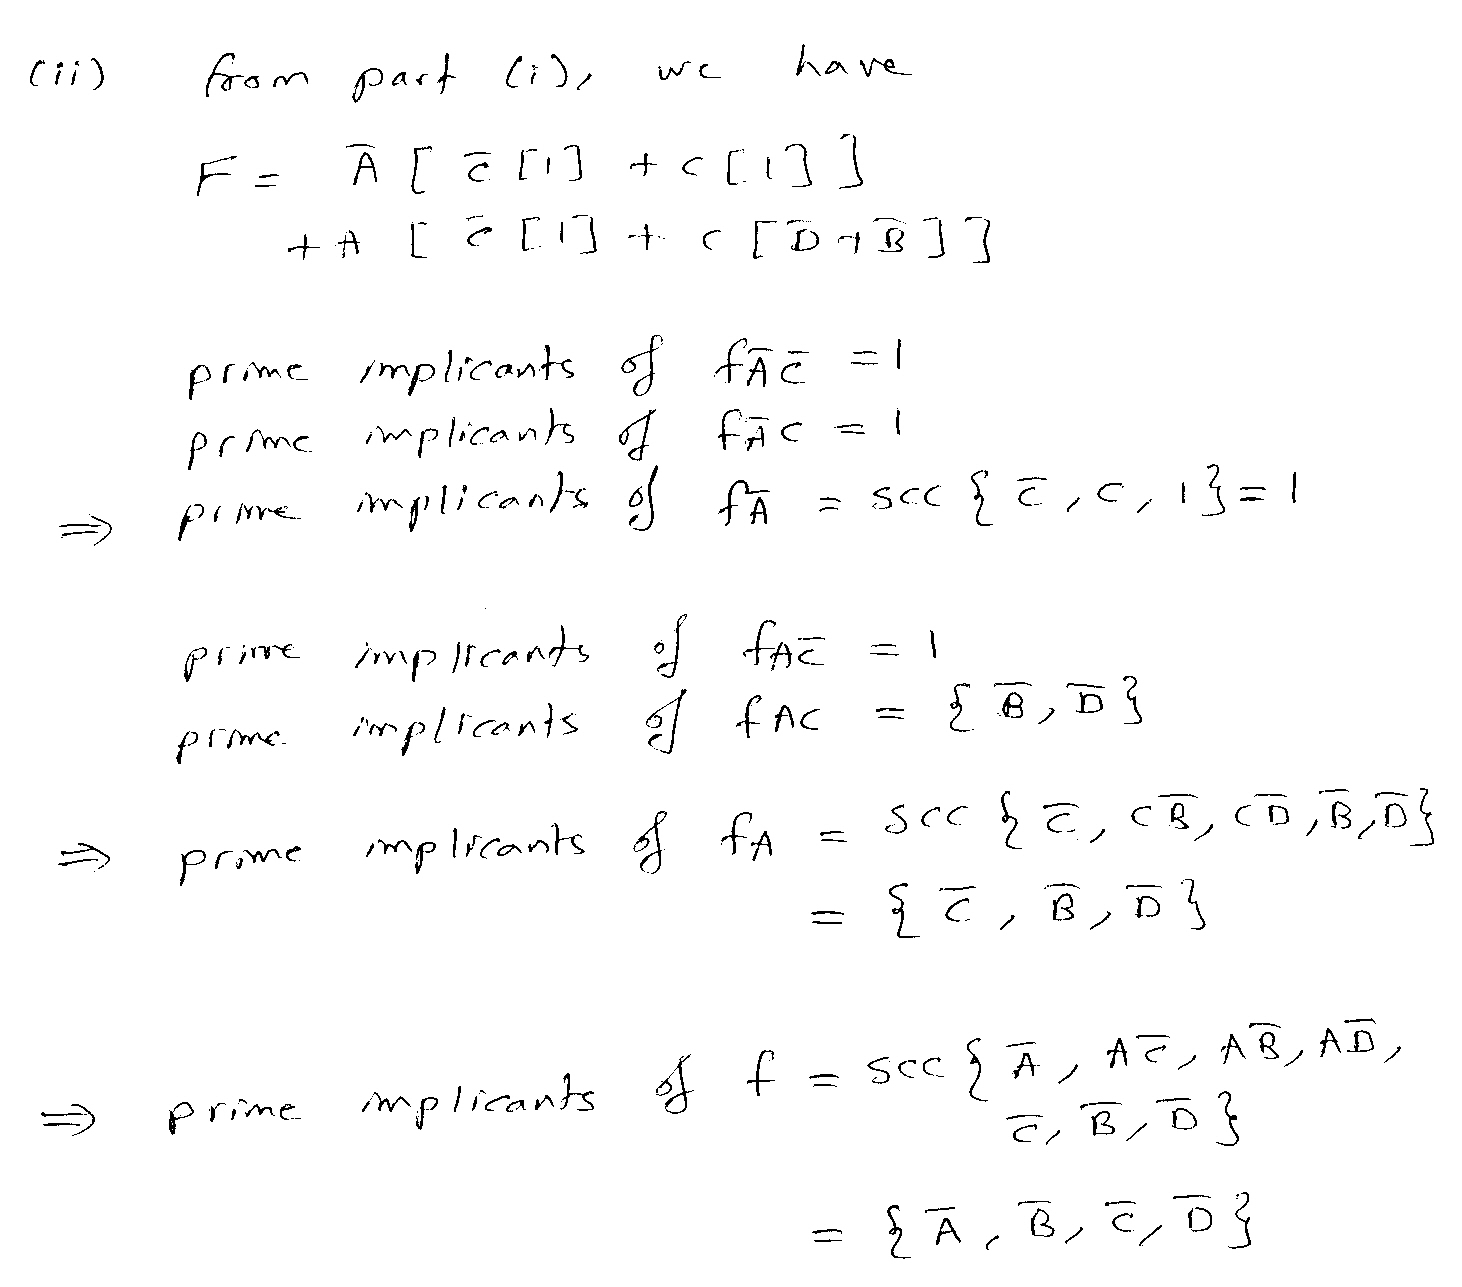 (ii) from part (i), we have
F = A̅ [ C̅ [1] + C [1] ]
+ A [ C̅ [1] + C [ D̅ + B̅ ] ]
prime implicants of fA̅C̅ = 1
prime implicants of fA̅C = 1
⇒ prime implicants of fA̅ = SCC { C̅, C, 1 } = 1
prime implicants of fAC̅ = 1
prime implicants of fAC = { B̅, D̅ }
⇒ prime implicants of fA = SCC { C̅, CB̅, CD̅, B̅, D̅ }
= { C̅, B̅, D̅ }
⇒ prime implicants of f = SCC { A̅, AC̅, AB̅, AD̅,
C̅, B̅, D̅ }
= { A̅, B̅, C̅, D̅ }